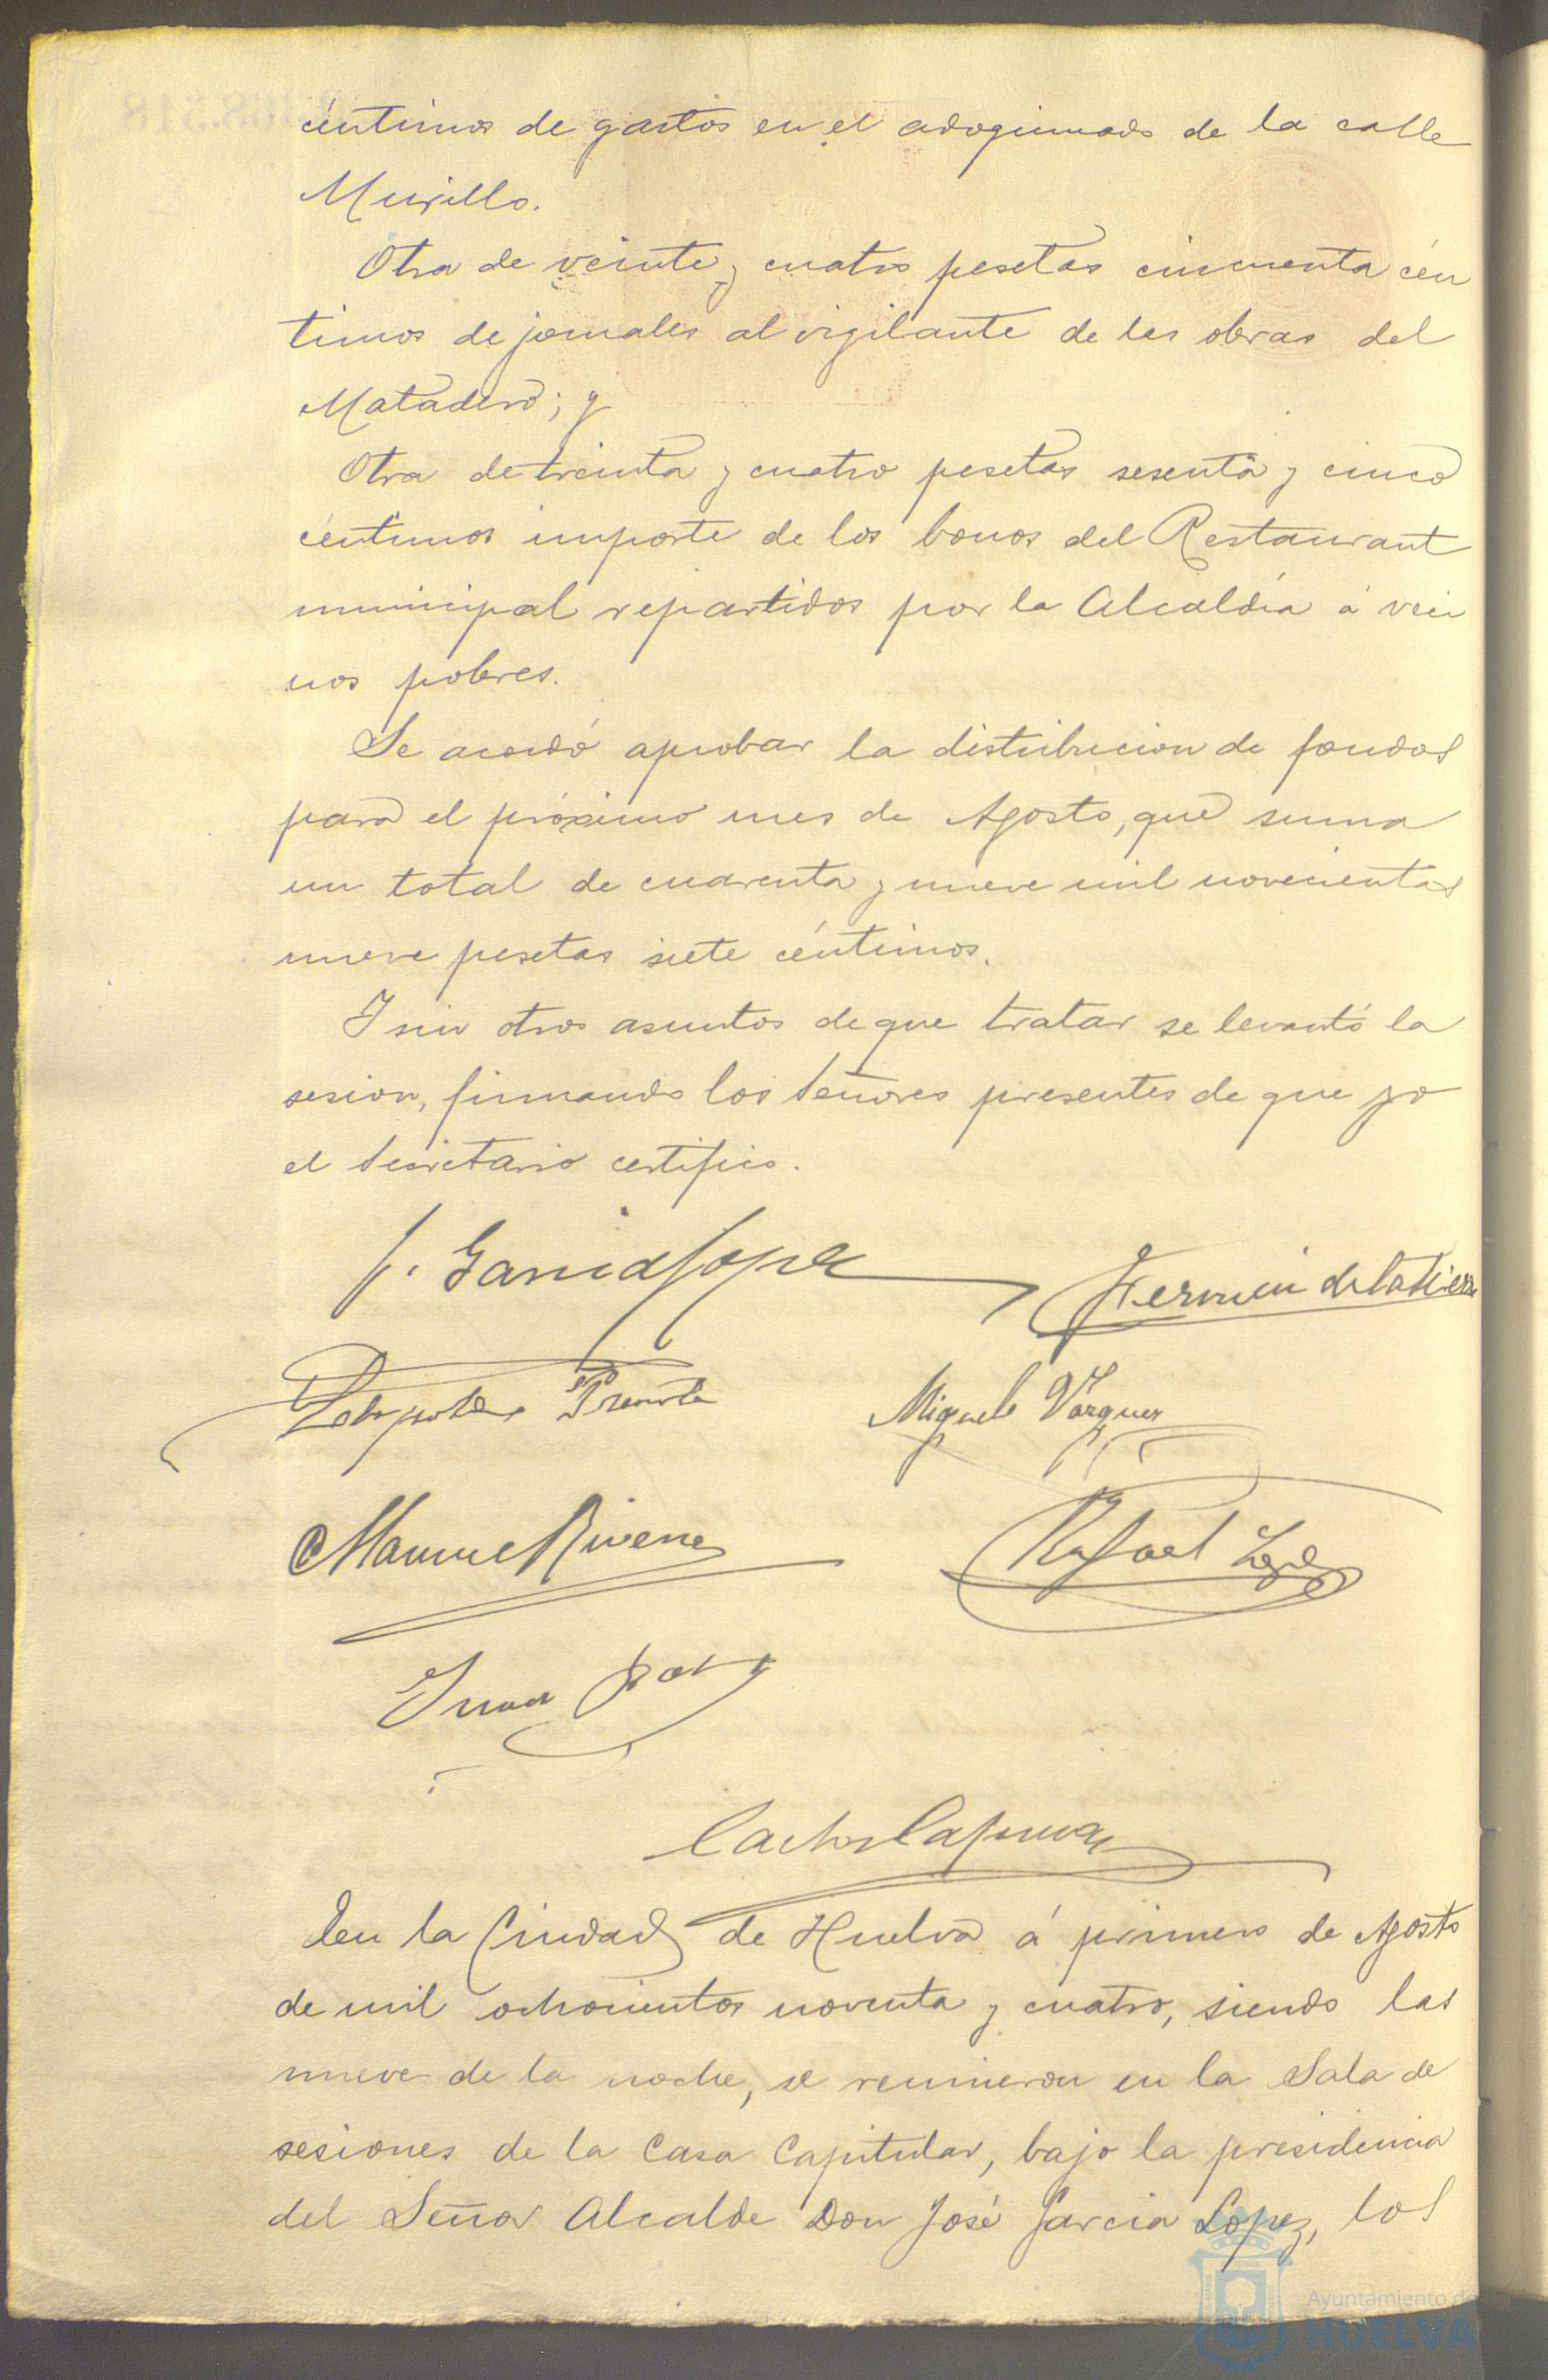 céntimos de gastos en el adoquinado de la calle
Murillo.
Otra de veinte y cuatro pesetas cincuenta cén
timos de jornales al vigilante de las obras del
Matadero; y
Otra de treinta y cuatro pesetas sesenta y cinco
céntimos importe de los bonos del Restaurant
municipal repartidos por la Alcaldía á veci
nos pobres.
Se acordó aprobar la distribucion de fondos
para el próximo mes de Agosto, que suma
un total de cuarenta y nueve mil novecientas
nueve pesetas siete céntimos.
Y sin otros asuntos de que tratar se levantó la
sesion, firmando los Señores presentes de que yo
el Secretario certifico.
J. Garcia Lopez
Fermin de la Sierra
Miguel Vázquez
Manuel Rivera
Rafael Lopez
Juan
En la Ciudad de Huelva á primero de Agosto
de mil ochocientos noventa y cuatro, siendo las
nueve de la noche, se reunieron en la Sala de
sesiones de la Casa Capitular, bajo la presidencia
del Señor Alcalde Don José Garcia Lopez, los
Ayuntamiento de
HUELVA